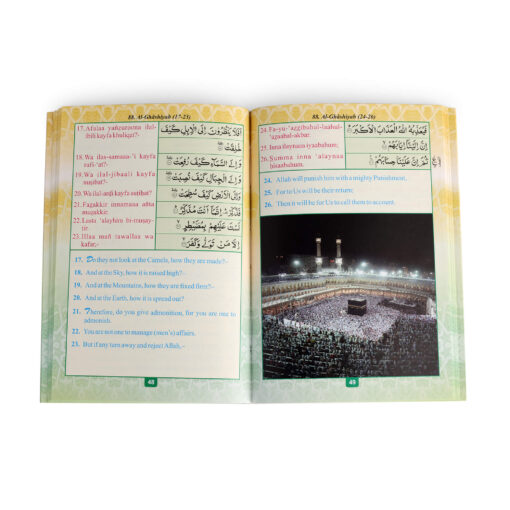 88. Al-Ghāshiyah (17-23)
17. Afalaa yañzuroona ilal-
ibili kayfa khuliqat?-
اَفَلَا يَنْظُرُوْنَ اِلَى الْاِبِلِ كَيْفَ
خُلِقَتْ
18. Wa ilas-samaaa-'i kayfa
rufi-'at?-
وَ اِلَى السَّمَآءِ كَيْفَ رُفِعَتْ
19. Wa ilal-jibaali kayfa
nuṣibat?-
وَ اِلَى الْجِبَالِ كَيْفَ نُصِبَتْ
20. Wa ilal-arḍi kayfa suṭiḥat?
وَ اِلَى الْاَرْضِ كَيْفَ سُطِحَتْ
21. Faẕakkir innamaaa añta
muẕakkir.
فَذَكِّرْ اِنَّمَآ اَنْتَ مُذَكِّرٌ
22. Lasta 'alayhim bi-muṣay-
ṭir.
لَسْتَ عَلَيْهِمْ بِمُصَۜيْطِرٍ
23. Illaa mañ tawallaa wa
kafar,-
اِلَّا مَنْ تَوَلّٰى وَ كَفَرَ
17. Do they not look at the Camels, how they are made?-
18. And at the Sky, how it is raised high?-
19. And at the Mountains, how they are fixed firm?-
20. And at the Earth, how it is spread out?
21. Therefore, do you give admonition, for you are one to
admonish.
22. You are not one to manage (men's) affairs.
23. But if any turn away and reject Allah, –
48
88. Al-Ghāshiyah (24-26)
24. Fa-yu-'aẕẕibuhul-laahul-
'aẕaabal-akbar.
فَيُعَذِّبُهُ اللّٰهُ الْعَذَابَ الْاَكْبَرَ
25. Inna ilaynaaa iyaabahum;
اِنَّ اِلَيْنَآ اِيَابَهُمْ
26. Summa inna 'alaynaa
ḥisaabahum.
ثُمَّ اِنَّ عَلَيْنَا حِسَابَهُمْ
24. Allah will punish him with a mighty Punishment,
25. For to Us will be their return;
26. Then it will be for Us to call them to account.
49